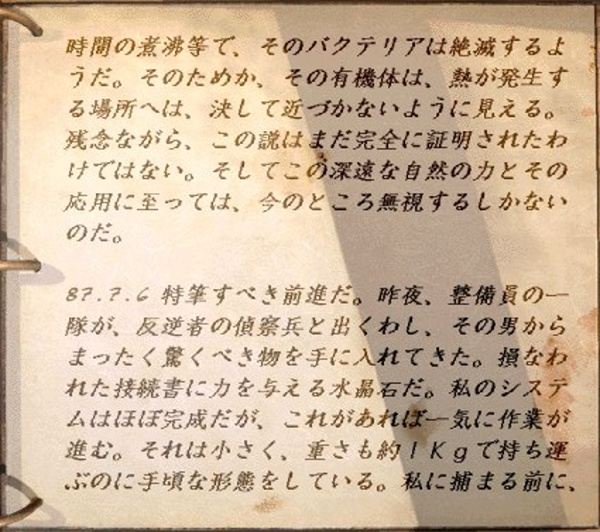 時間の煮沸等で、そのバクテリアは絶滅するよ
うだ。そのためか、その有機体は、熱が発生す
る場所へは、決して近づかないように見える。
残念ながら、この説はまだ完全に証明されたわ
けではない。そしてこの深遠な自然の力とその
応用に至っては、今のところ無視するしかない
のだ。
87.7.6 特筆すべき前進だ。昨夜、整備員の一
隊が、反逆者の偵察兵と出くわし、その男から
まったく驚くべき物を手に入れてきた。損なわ
れた接続書に力を与える水晶石だ。私のシステ
ムはほぼ完成だが、これがあれば一気に作業が
進む。それは小さく、重さも約1Kgで持ち運
ぶのに手頃な形態をしている。私に捕まる前に、